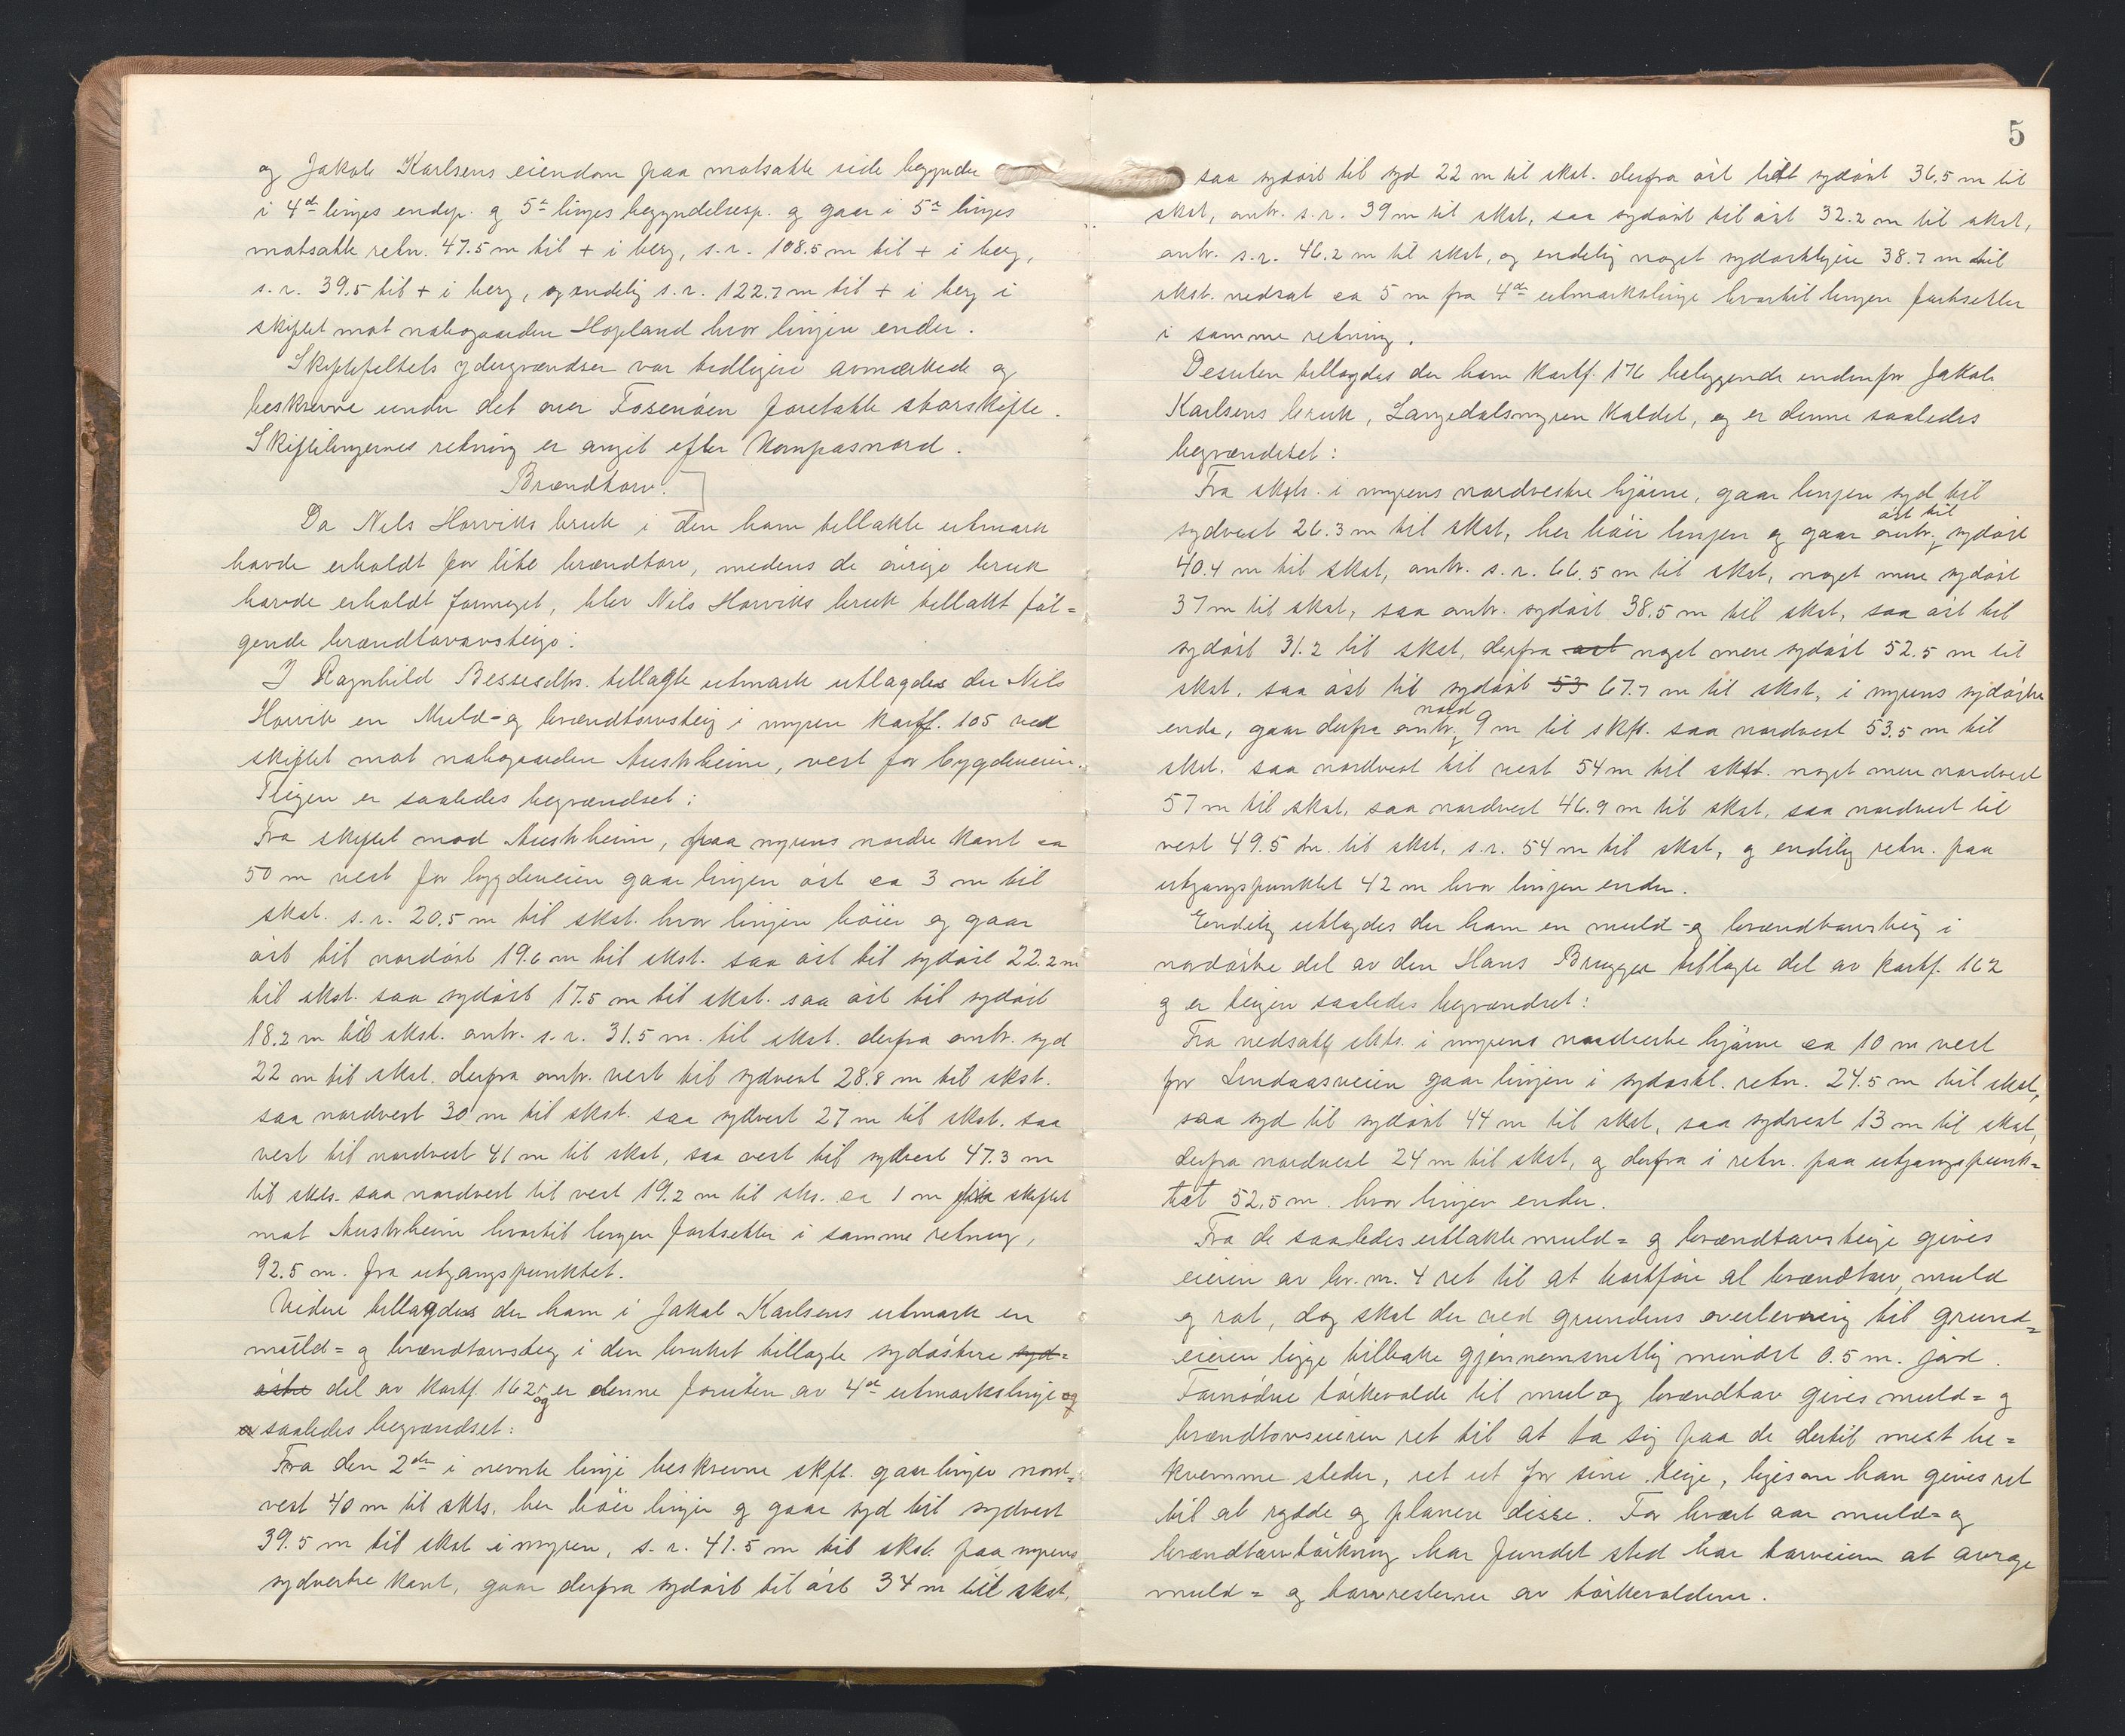 og Jakob Karlsens eiendom paa motsatte side begynder
i 4de linjes endep. og 5te linjes begyndelsesp. og gaar i 5te linjes
motsatte retn. 47.5 m til + i berg, s.r. 108.5 m til + i berg,
s.r. 39.5 til + i berg, og endelig s.r. 122.7 m til + i berg i
skiftet mot nabogaarden Hopland hvor linjen ender.
Skiftefeltets ydergrændser var tidligere avmerkede og
beskrevne under det over Fosenøen foretatte storskifte.
Skiftelinjernes retning er angit efter Kompasnord.
Brændtorv.
Da Nils Horviks bruk i den ham tillakte utmark
havde erholdt for lite brændtorv, medens de øvrige bruk
havde erholdt formeget, blev Nils Horviks bruk tillakt føl=
gende brændtorvsteige:
I Ragnhild Bessesdtr. tillagte utmark utlagdes der Nils
Horvik en Muld- og brændtorvsteig i myren kartf. 105 ved
skiftet mot nabogaarden Austrheim, vest for bygdeveien.
Teigen er saaledes begrændset:
Fra skiftet mod Austrheim, paa myrens nordre kant ca
50 m vest for bygdeveien gaar linjen øst ca 3 m til
skst. s.r. 20.5 m til skst. hvor linjen bøier og gaar
øst til nordøst 19.6 m til skst. saa øst til sydøst 22.2 m
til skst. saa sydøst 17.5 m til skst. saa øst til sydøst
18.2 m til skst. omtr. s.r. 31.5 m. til skst. derfra omtr. syd
22 m til skst. derfra omtr. vest til sydvest 28.8 m til skst.
saa nordvest 30 m til skst. saa sydvest 27 m til skst. saa
vest til nordvest 41 m til skst, saa vest til sydvest 47.3 m
til skts. saa nordvest til vest 19.2 m til sks. ca 1 m fra skiftet
mot Austrheim hvortil linjen fortsetter i samme retning,
92.5 m. fra utgangspunktet.
Videre tillagdes der ham i Jakob Karlsens utmark en
muld= og brændtorvsteig i den bruket tillagte sydøstere syd=
østre del av kartf. 162 og er denne foruten av 4de utmarkslinje og
er saaledes begrændset:
Fra den 2den i nevnte linje beskrevne skft. gaar linjen nord=
vest 40 m til skts. her bøier linjen og gaar syd til sydvest
39.5 m til skst i myren, s.r. 41.5 m til skst. paa myrens
sydvestre kant, gaar derfra sydøst til øst 34 m til skst,
5
saa sydøst til syd 22 m til skst. derfra øst litt sydøst 36,5 m til
skst, omtr. s.r. 39 m til skst, saa sydøst til øst 32.2 m til skst,
omtr. s.r. 46.2 m til skst, og endelig noget sydøstligere 38.7 m til
skst. nedsat ca 5 m fra 4de utmarkslinje hvortil linjen fortsetter
i samme retning.
Desuten tillagdes der ham kartf. 176 beliggende indenfor Jakob
Karlsens bruk, Langedalsmyren kaldet, og er denne saaledes
begrændset:
Fra skts. i myrens nordvestre hjørne, gaar linjen syd til
sydvest 26.3 m til skst, her bøier linjen og gaar omtr. øst til sydøst
40.4 m til skst, omtr. s.r. 66.5 m til skst, noget mere sydøst
37 m til skst, saa omtr. sydøst 38.5 m til skst, saa øst til
sydøst 31.2 til skst, derfra øst noget mere sydøst 52.5 m til
skst. saa øst til sydøst 53 67.7 m til skst, i myrens sydøstre
ende, gaar derfra omtr. nord 9 m til skft. saa nordvest 53.5 m til
skst. saa nordvest til vest 54 m til skst. noget mere nordvest
57 m til skst, saa nordvest 46.9 m til skst, saa nordvest til
vest 49.5 m. til skst, s.r. 54 m til skst, og endelig retn. paa
utgangspunktet 42 m hvor linjen ender.
Endelig utlagdes der ham en muld- og brændtorvsteig i
nordøstre del av den Hans Brugger tillagte del av kartf. 162
og er teigen saaledes begrændset:
Fra nedsatte skts. i myrens nordvestre hjørne ca 10 m vest
for Lindaasveien gaar linjen i sydøstl. retn. 24.5 m til skst,
saa syd til sydøst 44 m til skst, saa sydvest 13 m til skst,
derfra nordvest 24 m til skst, og derfra i retn. paa utgangspunk=
tet 52.5 m. hvor linjen ender.
Fra de saaledes utlakte muld= og brændtorvsteige gives
eieren av br. nr. 4 ret til at bortføre al brændtorv, muld
og rot, dog skal der ved grundens overlevering til grund=
eieren ligge tilbake gjennemsnitlig mindst 0.5 m. jord.
Fornødne tørkevolde til muld og brændtorv gives muld= og
brændtorvseieren ret til at ta sig paa de dertil mest be=
kvemme steder, ret ut for sine teige, likesom han gives ret
til at rydde og planere disse. For hvert aar muld= og
brændtorvtørkning har fundet sted har torveieren at avrage
muld= og torvresterne av tørkevoldene.